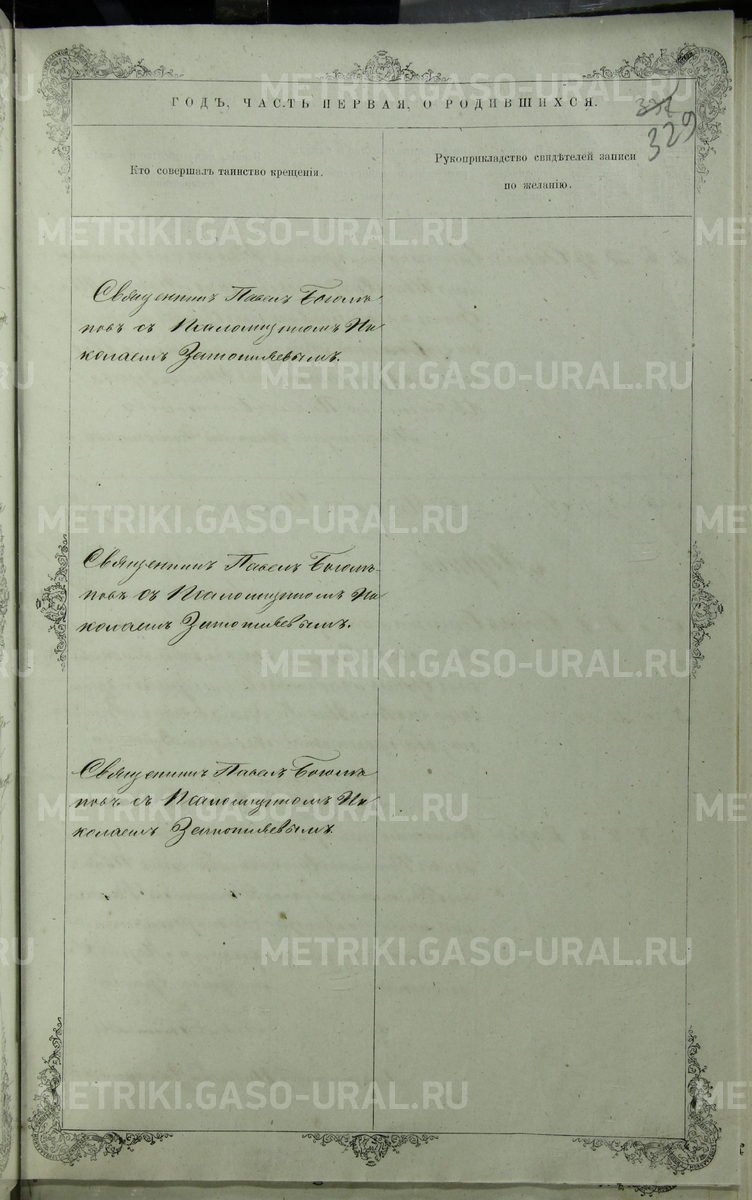 ГОДЪ, ЧАСТЬ ПЕРВАЯ, О РОДИВШИХСЯ.
329
Кто совершалъ таинство крещенія.
Рукоприкладство свидѣтелей записи
по желанію.
Священникъ Павелъ
с Псаломщикомъ Ни
колаемъ Затопляевымъ.
Священникъ Павелъ
съ Псаломщикомъ Ни
колаемъ Затопляевымъ.
Священникъ Павелъ
съ Псаломщикомъ Ни
колаемъ Затопляевымъ
METRIKI.GASO-URAL.RU